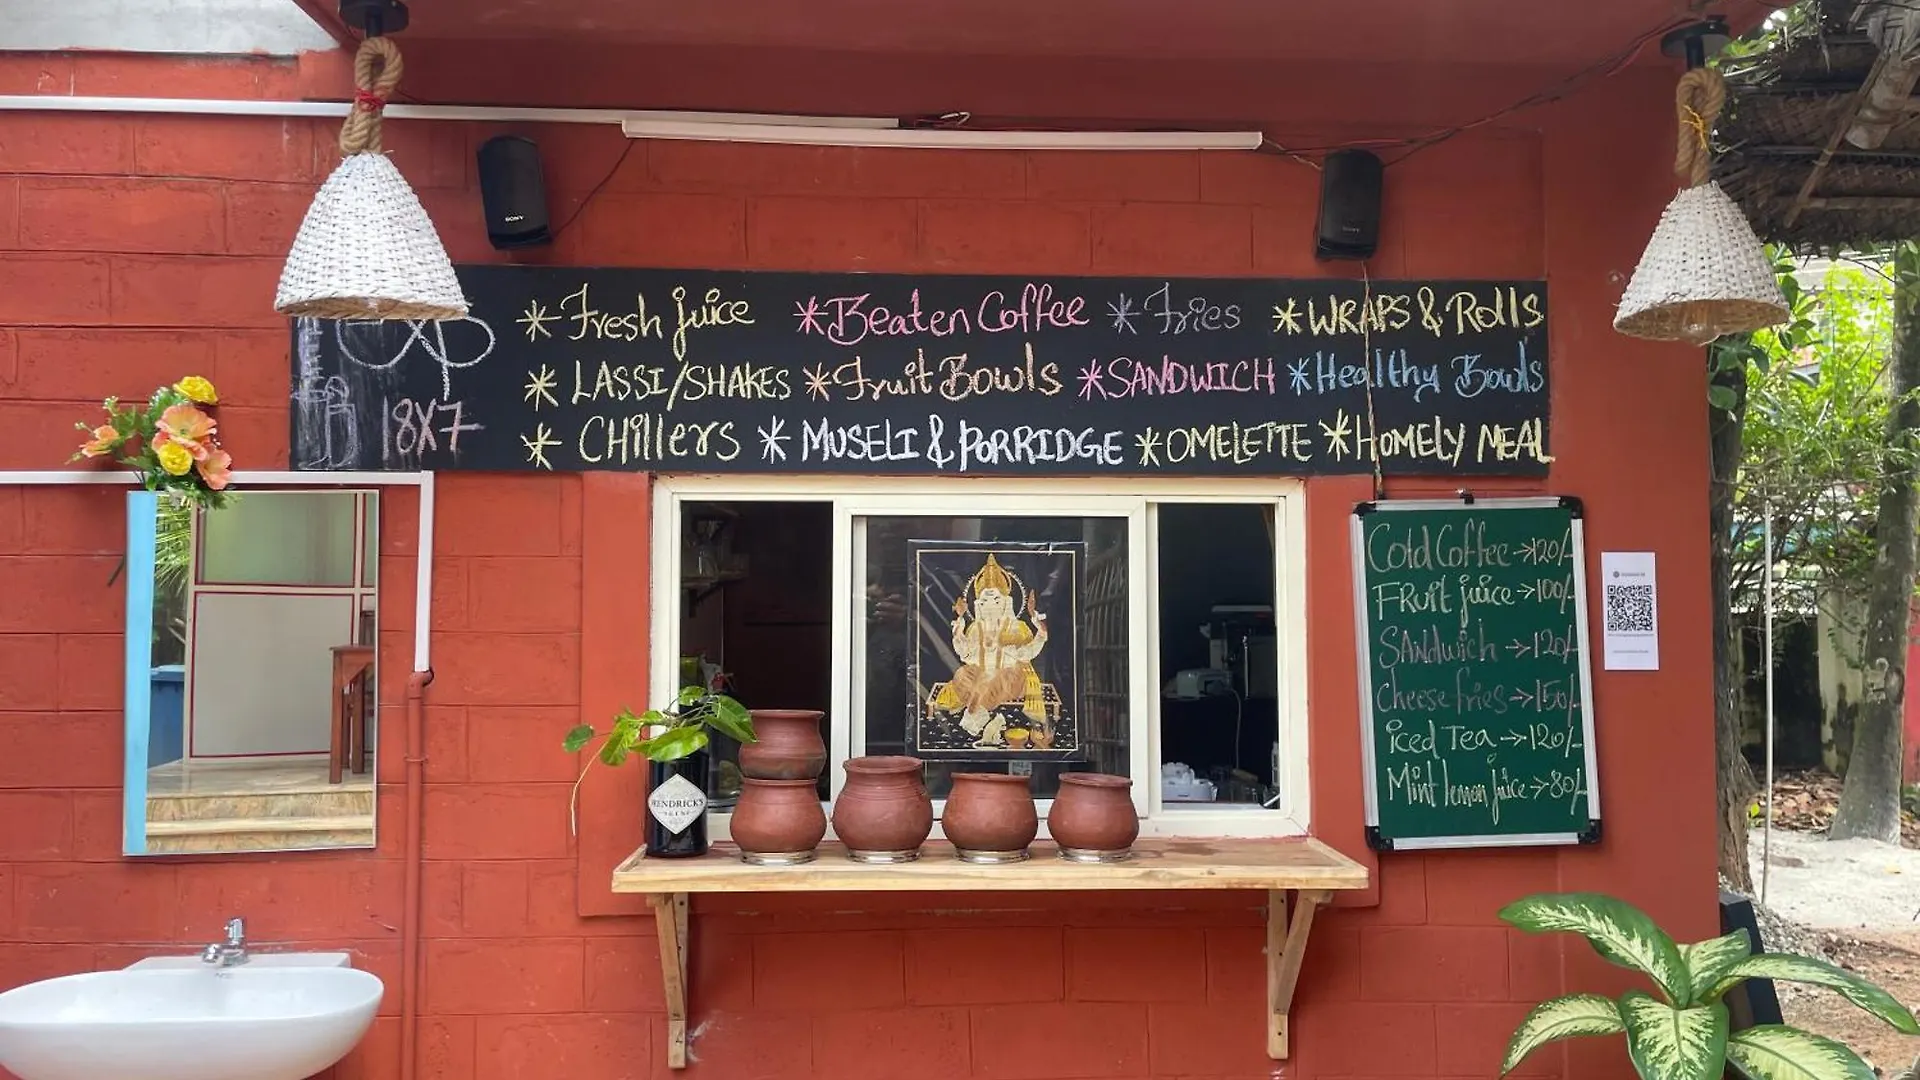 SONY
SONY
*Fresh juice *Beaten Coffee *Fries *WRAPS & Rolls
*LASSI/SHAKES *Fruit Bowls *SANDWICH *Healthy Bowls
18X7 *CHillers *MUSELI & PORRIDGE *OMELETTE *HOMELY MEAL
Cold Coffee → 120/-
FRuit juice → 100/-
SANdwich → 120/-
Cheese fries → 150/-
iced Tea → 120/-
Mint lemon juice → 80/-
HENDRICK'S